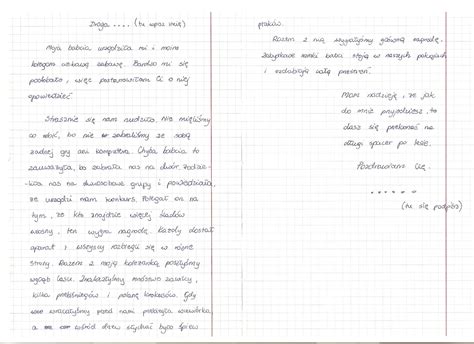 Droga .... (tu wpisz imię)
Moja babcia urządziła mi i moim
kolegom ciekawą zabawę. Bardzo mi się
podobało, więc postanowiłam Ci o niej
opowiedzieć.
Strasznie się nam nudziło. Nie mieliśmy
co robić, bo nie zabraliśmy ze sobą
żadnej gry ani komputera. Chyba babcia to
zauważyła, bo zabrała nas na dwór. Podzie-
liła nas na dwuosobowe grupy i powiedziała,
że urządzi nam konkurs. Polegał on na
tym, że kto znajdzie więcej śladów
wiosny, ten wygra nagrodę. Każdy dostał
aparat i wszyscy rozbiegli się w różne
strony. Razem z moją koleżanką poszłyśmy
wgłąb lasu. Znalazłyśmy mnóstwo zawilcy,
kilka przebiśniegów i polanę krokusów. Gdy
wracałyśmy przed nami przebiegła wiewiórka,
a wśród drzew słychać było śpiew
ptaków.
Razem z nią wygrałyśmy główną nagrodę.
Zdobyte ramki babci stoją w naszych pokojach
i ozdabiają całą przestrzeń.
Mam nadzieję, że jak
do mnie przyjedziesz, to
dasz się przekonać na
długi spacer po lesie.
Pozdrawiam Cię.
......
(tu się podpisz)